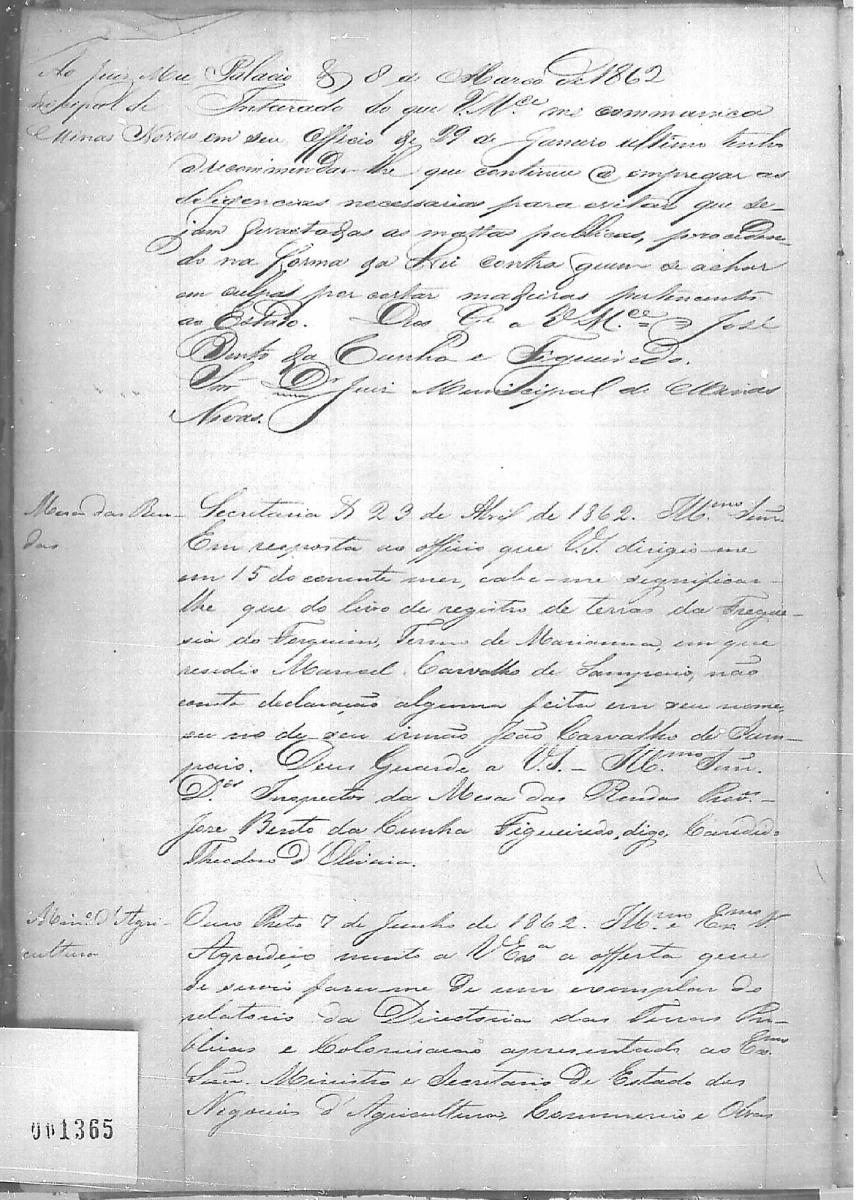 Ao Juiz Mu
nicipal de
Minas Novas
Palacio & 8 de Março de 1862
Inteirado do que V.M.ce me communica
em seu officio de 29 de Janeiro ultimo tenho
a recommendar-lhe que continue a empregar as
deligencias necessarias para evitar que se-
jam devastadas as mattas publicas, proceden-
do na forma da Lei contra quem se achar
em culpa por cortar madeiras pertencentes
ao Estado. Deos G.e a V.M.ce = José
Bento da Cunha e Figueiredo.
Snr. Dr Juiz Municipal de Minas
Novas.
Mesa das Ren-
das
Secretaria & 23 de Abril de 1862. Ill.mo Snr.
Em resposta ao officio que V.S. dirigio-me
em 15 do corrente mez, cabe-me significar-
lhe que do livro de registro de terras da Fregue-
sia do Forquim, Termo de Marianna, em que
residio Manoel Carvalho de Sampaio, não
consta declaração alguma feita em seu nome,
ou no de seu irmão João Carvalho de Sam-
paio. Deus Guarde a V.S. - Ill.mo Snr.
D.or Inspector da Mesa das Rendas Prov.-
José Bento da Cunha Figueiredo, digo, Candido
Theodoro d'Oliveira.
Min.o d'Agri-
cultura
Ouro Preto 7 de Junho de 1862. Ill.mo e Ex.mo Sr
Agradeço muito a V Ex.a a offerta que
se servio fazer-me de um exemplar do
relatorio da Directoria das Terras Pu-
blicas e Colonisação apresentado ao Ex.mo
Snr. Ministro e Secretario de Estado dos
Negocios d'Agricultura, Commercio e Obras
001365